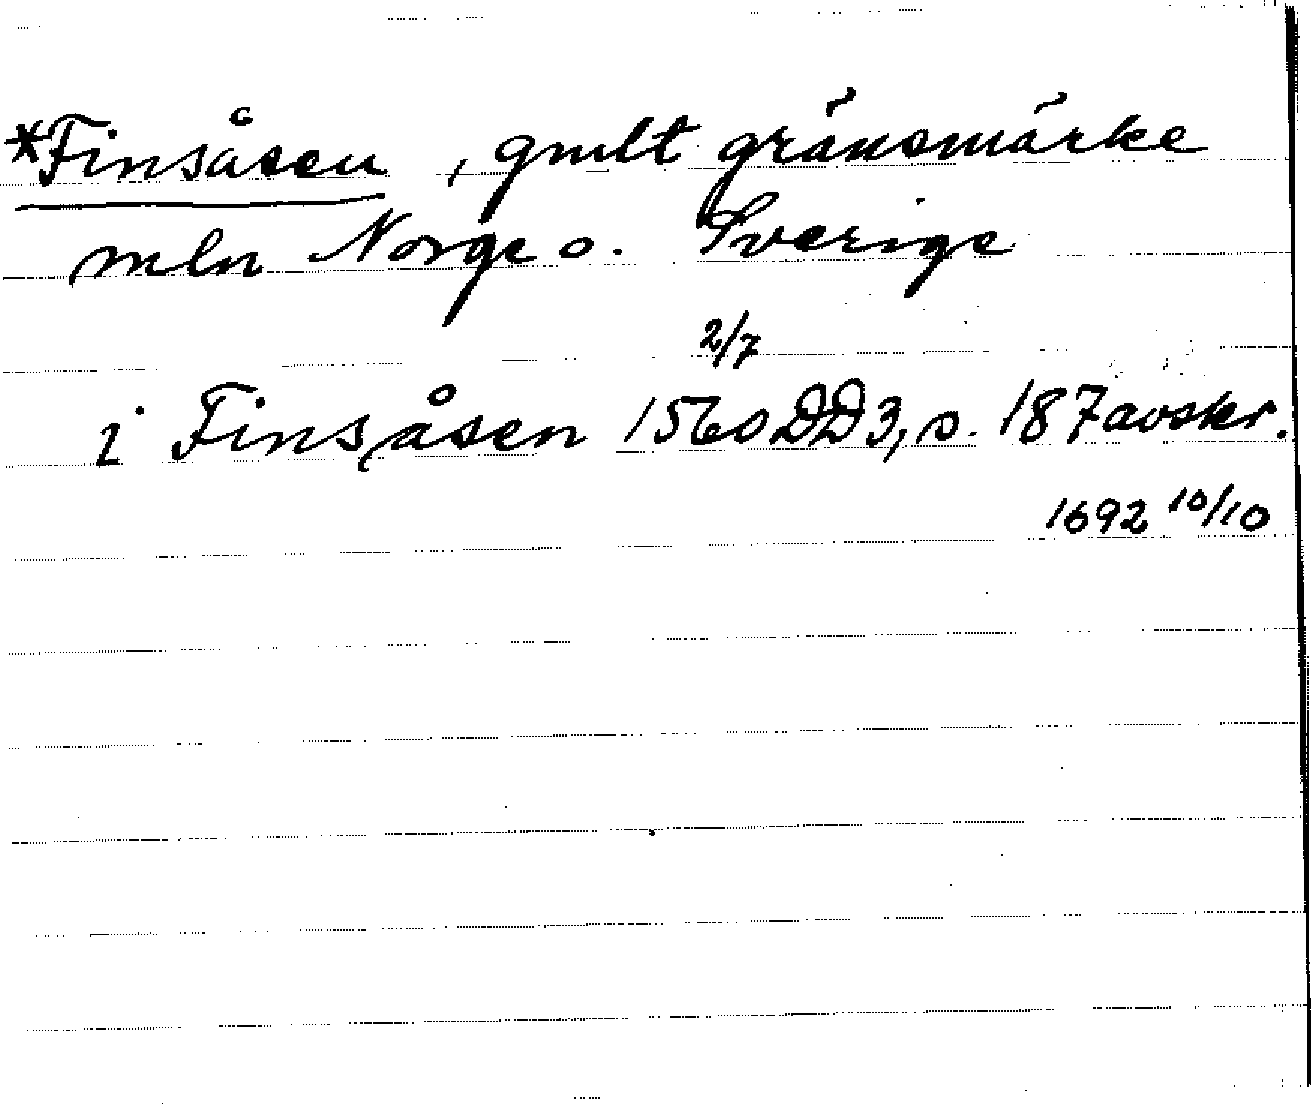 *Finsåsen, gmlt gränsmärke
mln Norge o. Sverige
2/7
i Finsåsen 1560 DD3, s. 187 avskr.
1692 10/10